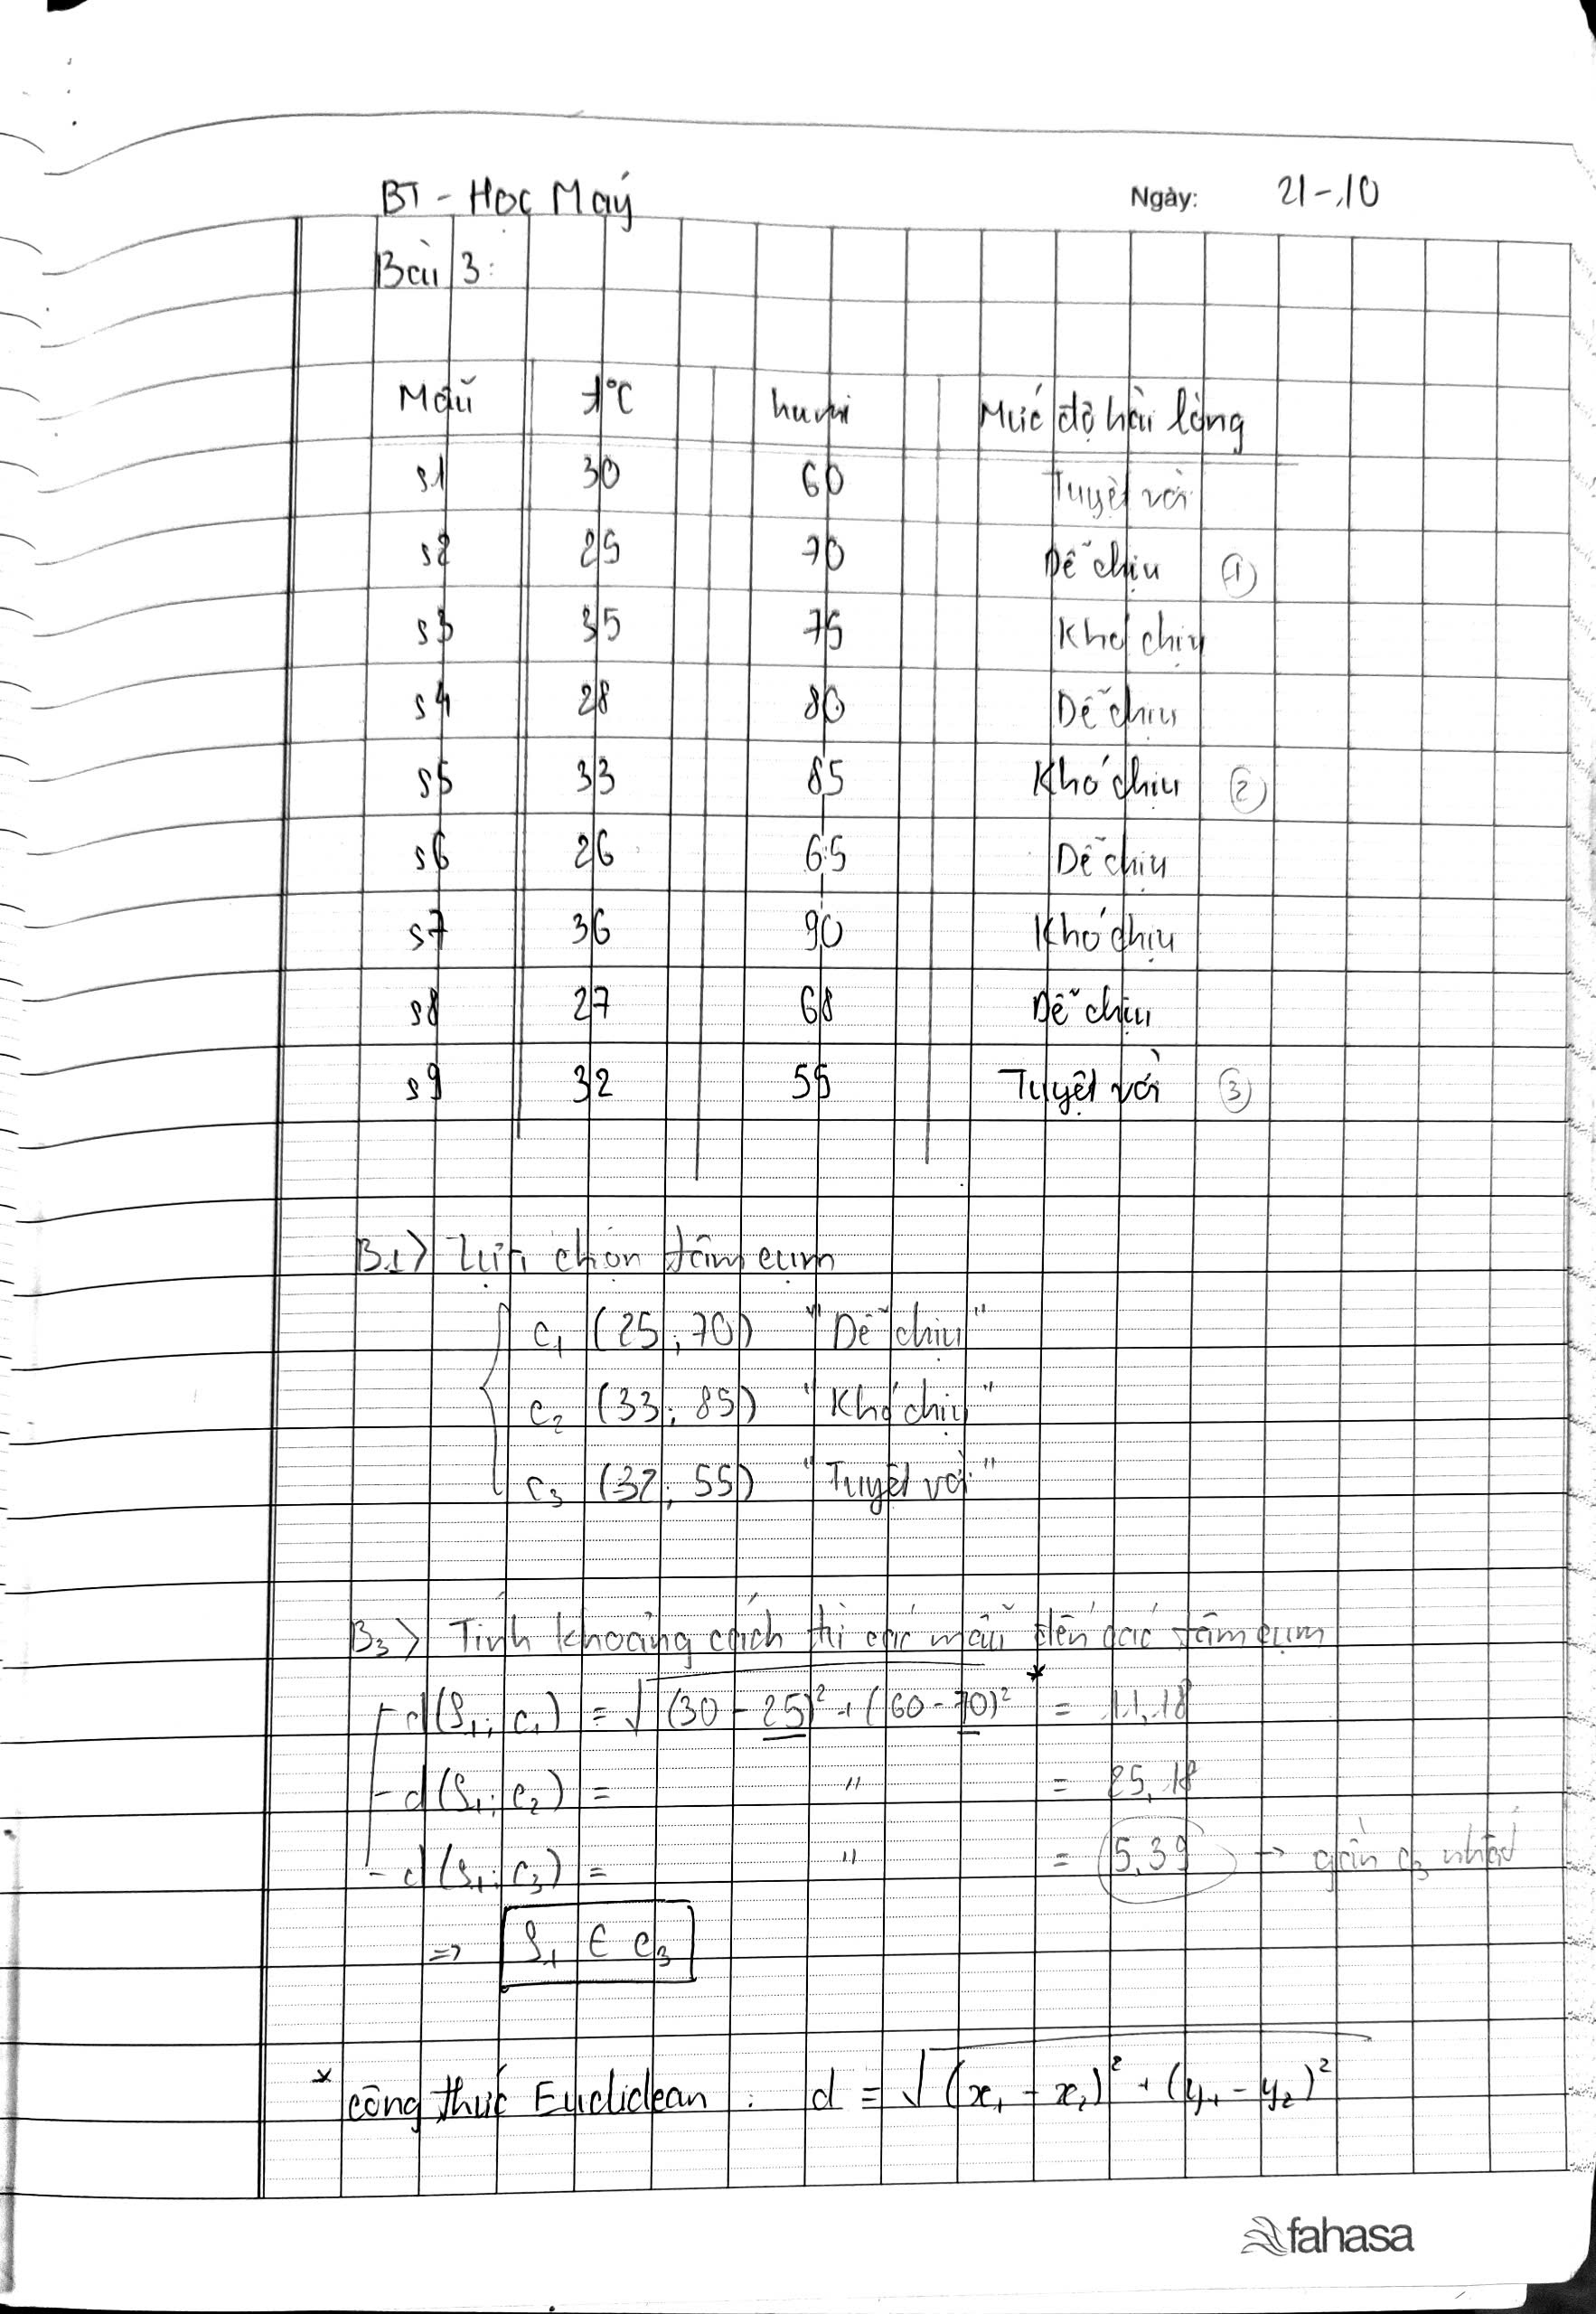 BT - Học Máy
Ngày: 21-10
Bài 3:
Mẫu t°C humi Mức độ hài lòng
s1 30 60 Tuyệt vời
s2 25 70 Dễ chịu ①
s3 35 75 Khó chịu
s4 28 80 Dễ chịu
s5 33 85 Khó chịu ②
s6 26 65 Dễ chịu
s7 36 90 Khó chịu
s8 27 68 Dễ chịu
s9 32 55 Tuyệt vời ③
B1> Lựa chọn tâm cụm
c₁ (25; 70) "Dễ chịu"
c₂ (33; 85) "Khó chịu"
c₃ (32; 55) "Tuyệt vời"
B3> Tính khoảng cách từ các mẫu đến các tâm cụm
- d(S₁; c₁) = √(30 - 25)² + (60 - 70)² * = 11,18
- d(S₁; c₂) = " = 25,18
- d(S₁; c₃) = " = 5,39 → gần c₃ nhất
=> S₁ ∈ c₃
* công thức Euclidean : d = √(x₁ - x₂)² + (y₁ - y₂)²
fahasa